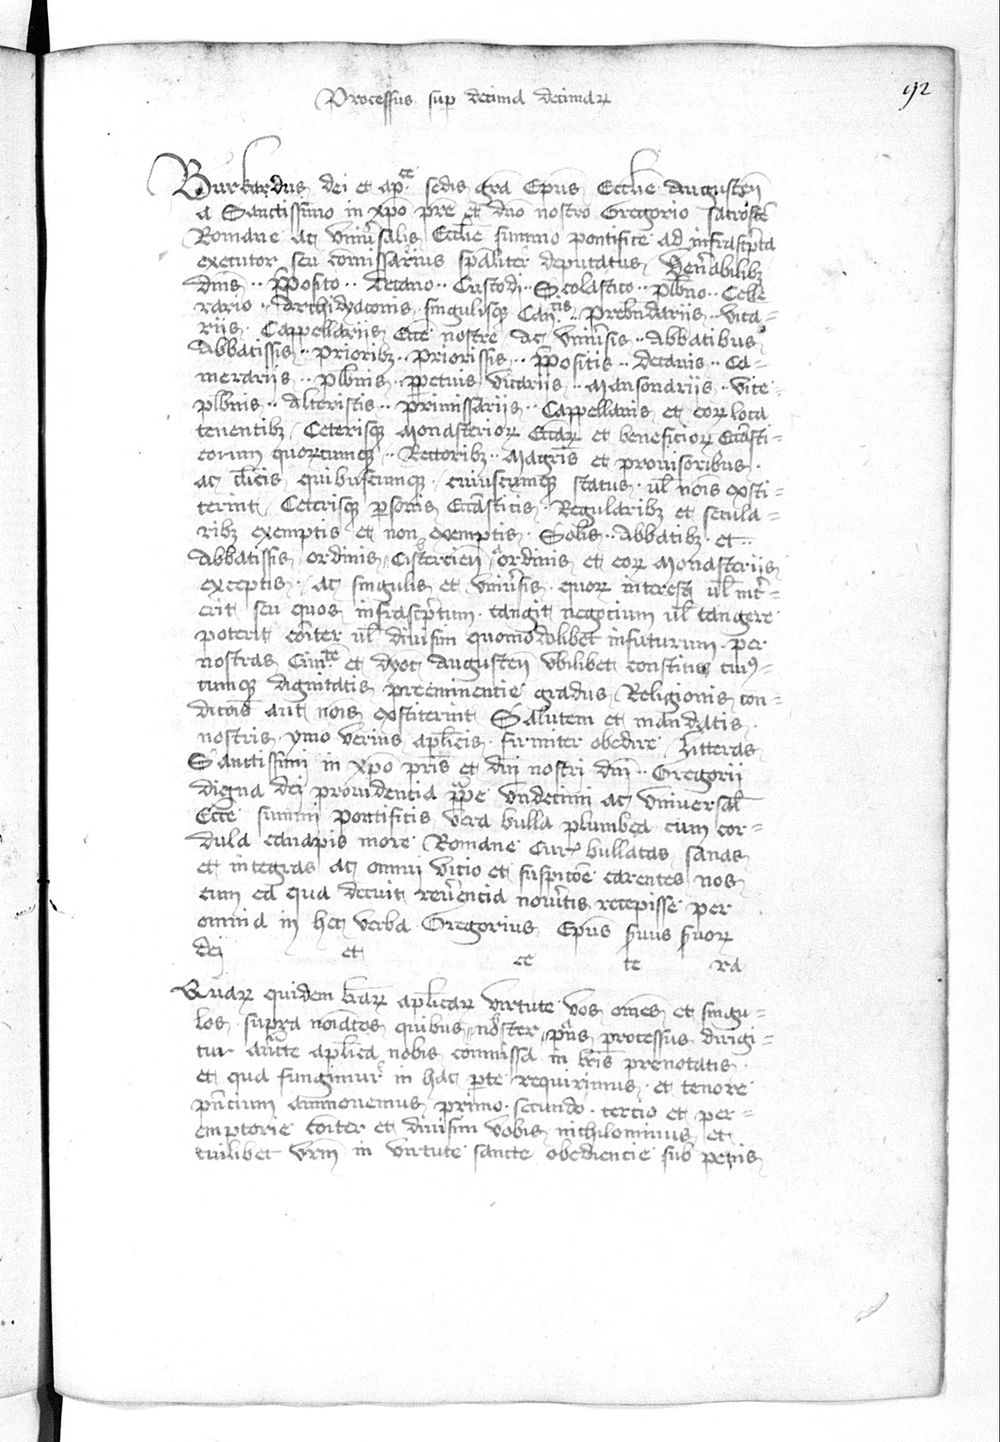 Processus sup decima decimaꝝ
92
Burkardus dei et ap.ce sedis gr̄a Ep̄us Eccl̄ie Augusten̄
a Sanctissimo in xp̄o pr̄e et dn̄o nostro Gregorio sacroste
Romane ac vniu͛salis Eccl̄ie summo pontifice ad infrascp̄ta
executor seu comissarius sp̄alit͛ deputatus Ven͛abilibꝫ
dn̄is ·· p̄posito ·· decano ·· Custodi ·· Scolastico ·· pl̄bno ·· Celle
rario ·· Archidyaconis singulisqꝫ Can.cis ·· prebendariis ·· vica-
riis · Cappellariis Ecc̄e nostre Ac vniu͛sis ·· Abbatibus
Abbatissis ·· prioribꝫ ·· priorissis ·· p̄positis ·· decanis ·· Ca-
merariis ·· pl̄bnis ·· ꝑpetuis vicariis ·· Mansonariis ·· vice-
pl̄bnis ·· Alteristis ·· primissariis ·· Cappellanis et eoꝝ loca
tenentibꝫ Ceterisqꝫ Monasterioꝝ Ecc̄aꝝ et beneficioꝝ Ecc̄asti-
corum quorcumqꝫ ·· Rectoribꝫ ·· Magr̄is et prouisoribus ·
ac cl̄icis quibuscumqꝫ · cuiuscumqꝫ status · ul̄ nōis exsti-
terint Ceterisqꝫ ꝑsonis Ecc̄asticis · Regularibꝫ et secula-
ribꝫ exemptis et non exemptis · Sol̄is ·· Abbatibꝫ · et ··
Abbatissis ordinis Cistercien̄ ordinis et eoꝝ Monasteriis
exceptis · Ac singulis et vniu͛sis · quoꝝ interest ul̄ int͛-
erit seu quos infrascp̄tum · tangit negocium ul̄ tangere
poterit cōiter ul̄ diuisim quomodolibet infuturum · per
nostras Ciui.te et dyoc̄ Augusten̄ vbilibet constitu cuiꝰ-
cumqꝫ dignitatis preeminencie gradus Religionis con-
dicōis aut nōis exstiterint Salutem et mandatis ·
nostris ymo verius apl̄icis · firmiter obedire Litteras
Sanctissimi in xp̄o pr̄is et dn̄i nostri dn̄i ·· Gregorii
digna dei prouidencia p̄pe vndecimi ac vniuersal̄
Ecc̄e summi pontificis vera bulla plumbea cum cor-
dula canapis more Romane Cur͛ bullatas sanas
et integras ac omni vicio et suspicōe carentes nos
cum ea qua decuit reu͛encia nou͛itis recepisse per
omnia in hec verba Gregorius Ep̄us s̄uus s̄uoꝝ
dei et ce te ra
Quaꝝ quidem lr̄aꝝ apl̄icaꝝ virtute vos om̄es et singu-
los · supra noi̅atos quibus noster p̄ns processus dirigi-
tur auc̄te apl̄ica nobis commissa in lr̄is prenotatis ·
et qua fungimur in hac ꝑte requirimus · et tenore
pn̄cium ammonemus primo · secundo · tercio et per-
emptorie cōiter et diuisim vobis nichilominus et
cuilibet vr̄m in virtute sancte obediencie sub penis